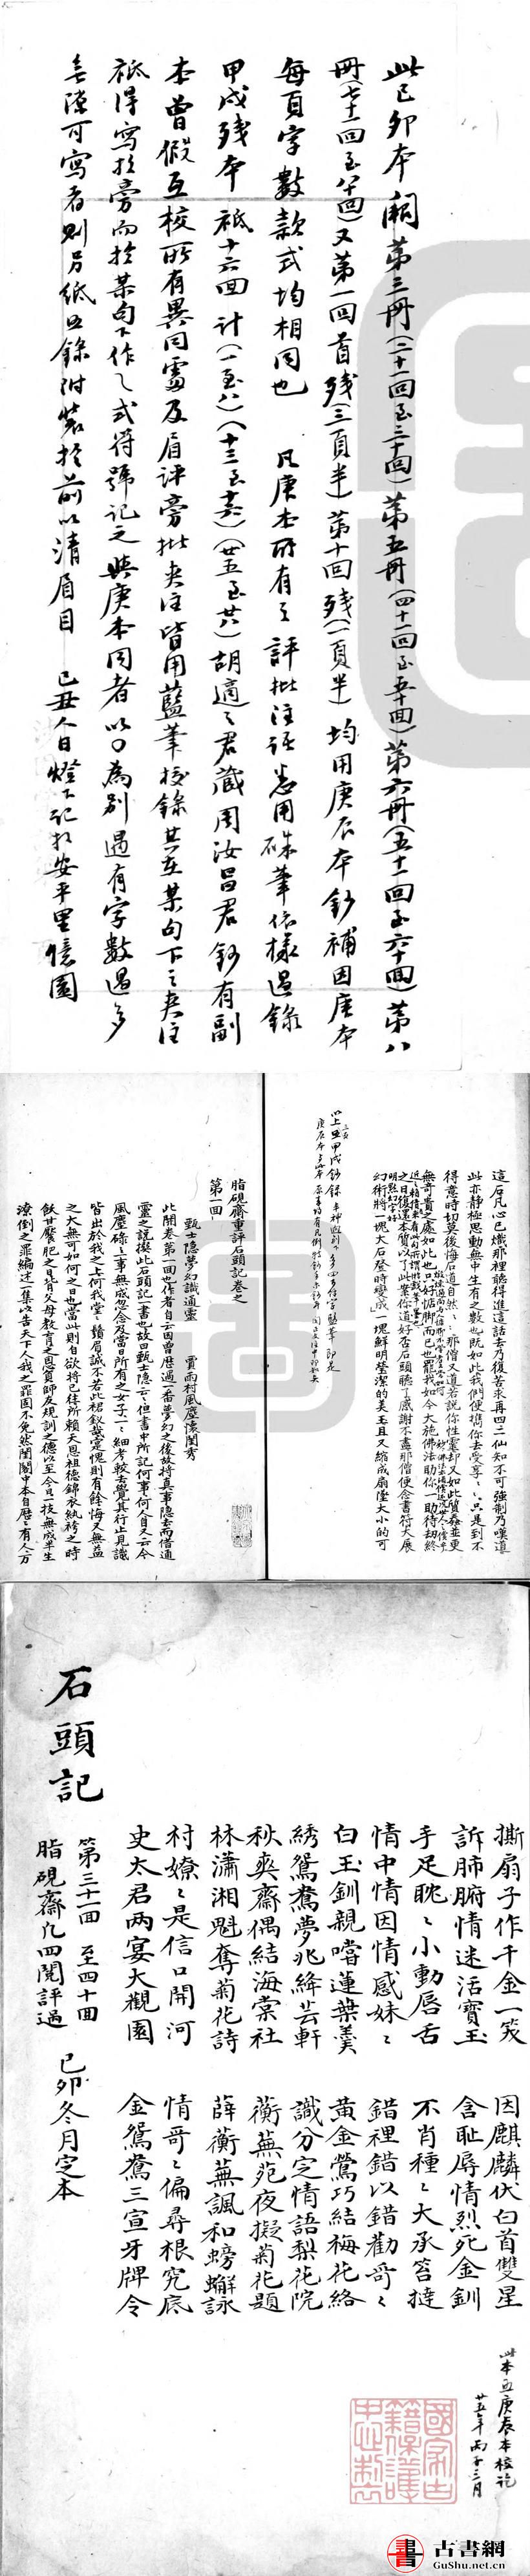 此己卯本闕第三冊（二十一回至三十回）第五冊（四十一回至五十回）第六冊（五十一回至六十回）第八
冊（七十一回至八十回）又第一回首殘（三頁半）第十回殘（一頁半）均用庚辰本鈔補因庚本
每頁字數款式均相同也　凡庚本所有之評批注語悉用硃筆依樣過錄
甲戌殘本祗十六回計（一至八）（十三至十六）（廿五至廿八）胡適之君藏周汝昌君鈔有副
本曾假互校所有異同處及眉評旁批夾注皆用藍筆校錄其在某句下之夾注
祗得寫於旁而於某句下作乀式符號記之與庚本同者以〇為別遇有字數過多
無隙可寫者則另紙照錄附裝於前以清眉目　己丑人日燈下記於安平里憶園
這石凡心已熾那裡聽得進這話去乃復苦求再四二仙知不可強制乃嘆道
此亦靜極思動無中生有之數也既如此我們便攜你去受享受享只是到不
得意時切莫後悔石道自然自然那僧又道若說你性靈卻又如此質蠢並更
無奇貴之處如此也只好踮腳而已也罷我如今大施佛法助你一助待劫終
之日復還本質以了此案你道好否石頭聽了感謝不盡那僧便念書符大展
幻術將一塊大石登時變成一塊鮮明瑩潔的美玉且又縮成扇墜大小的可
脂硯齋重評石頭記卷之
第一回
甄士隱夢幻識通靈　賈雨村風塵懷閨秀
此開卷第一回也作者自云因曾歷過一番夢幻之後故將真事隱去而借通
靈之說撰此石頭記一書也故曰甄士隱云云但書中所記何事何人自又云今
風塵碌碌一事無成忽念及當日所有之女子一一細考較去覺其行止見識
皆出於我之上何我堂堂鬚眉誠不若此裙釵哉實愧則有餘悔又無益
之大無可如何之日也當此則自欲將已往所賴天恩祖德錦衣紈袴之時
飫甘饜肥之日背父母教育之恩負師友規訓之德以至今日一技無成半生
潦倒之罪編述一集以告天下人我之罪固不免然閨閣中本自歷歷有人万
撕扇子作千金一笑　因麒麟伏白首雙星
訴肺腑情迷活寶玉　含恥辱情烈死金釧
手足眈眈小動唇舌　不肖種種大承笞撻
情中情因情感妹妹　錯裡錯以錯勸哥哥
白玉釧親嚐蓮葉羹　黃金鶯巧結梅花絡
綉鴛鴦夢兆絳芸軒　識分定情語梨花院
秋爽齋偶結海棠社　蘅蕪苑夜擬菊花題
林瀟湘魁奪菊花詩　薛蘅蕪諷和螃蟹詠
村嫽嫽是信口開河　情哥哥偏尋根究底
史太君兩宴大觀園　金鴛鴦三宣牙牌令
第三十一回　至四十回
脂硯齋凡四閱評過　己卯冬月定本
石頭記
此本照庚辰本校訖
廿五年丙子三月
國家古
籍保護
中心製
古書網
GuShu.net.cn